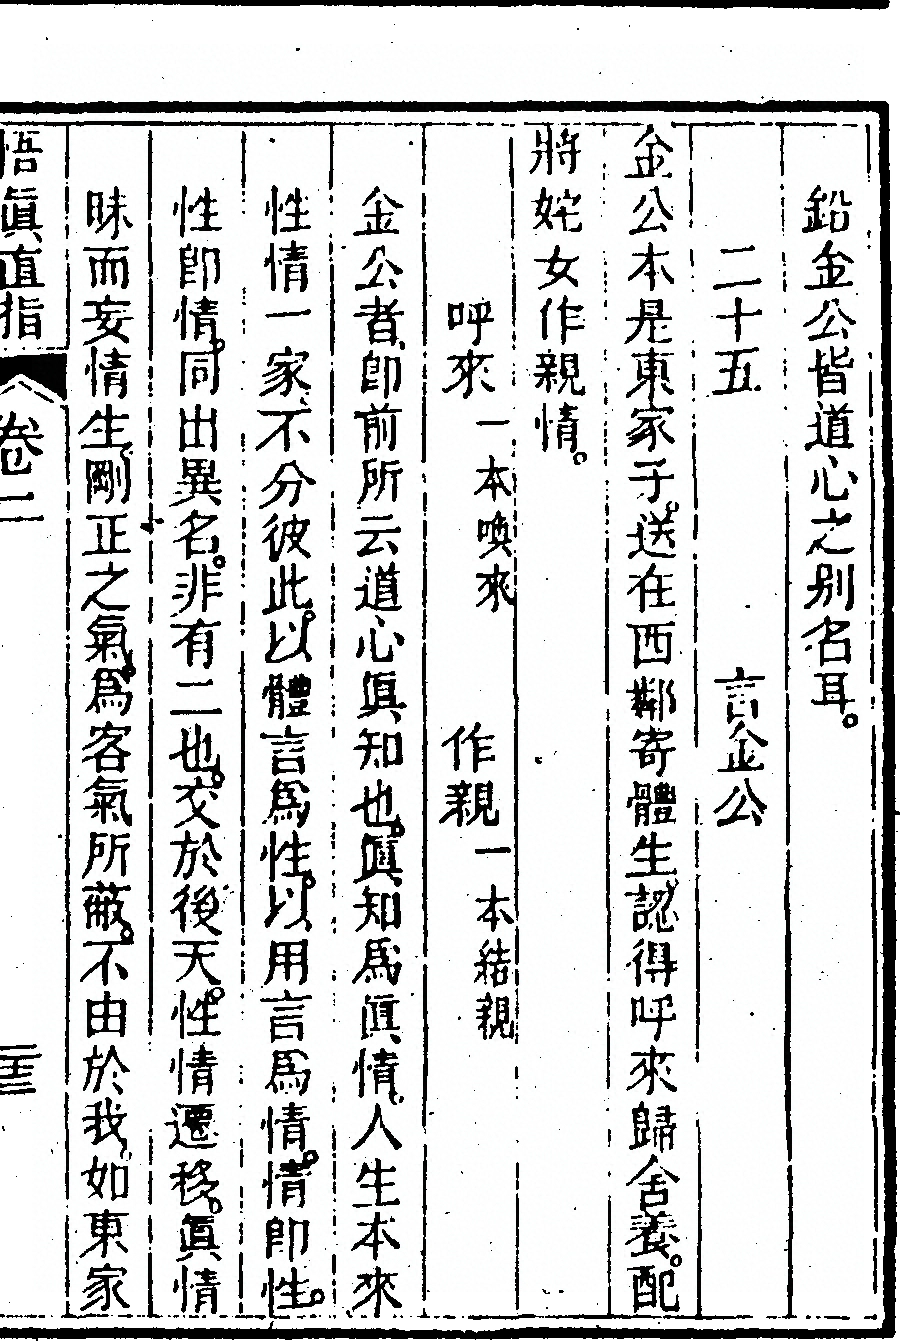 鉛金公皆道心之别名耳。
二十五　言金公
金公本是東家子。送在西鄰寄體生。認得呼來歸舍養。配
將姹女作親情。
呼來一本喚來　作親一本結親
金公者、卽前所云道心眞知也。眞知爲眞情、人生本來
性情一家、不分彼此。以體言爲性。以用言爲情。情卽性。
性卽情。同出異名。非有二也。交於後天。性情遷移。眞情
昧而妄情生、剛正之氣。爲客氣所蔽。不由於我、如東家
悟眞直指　卷二